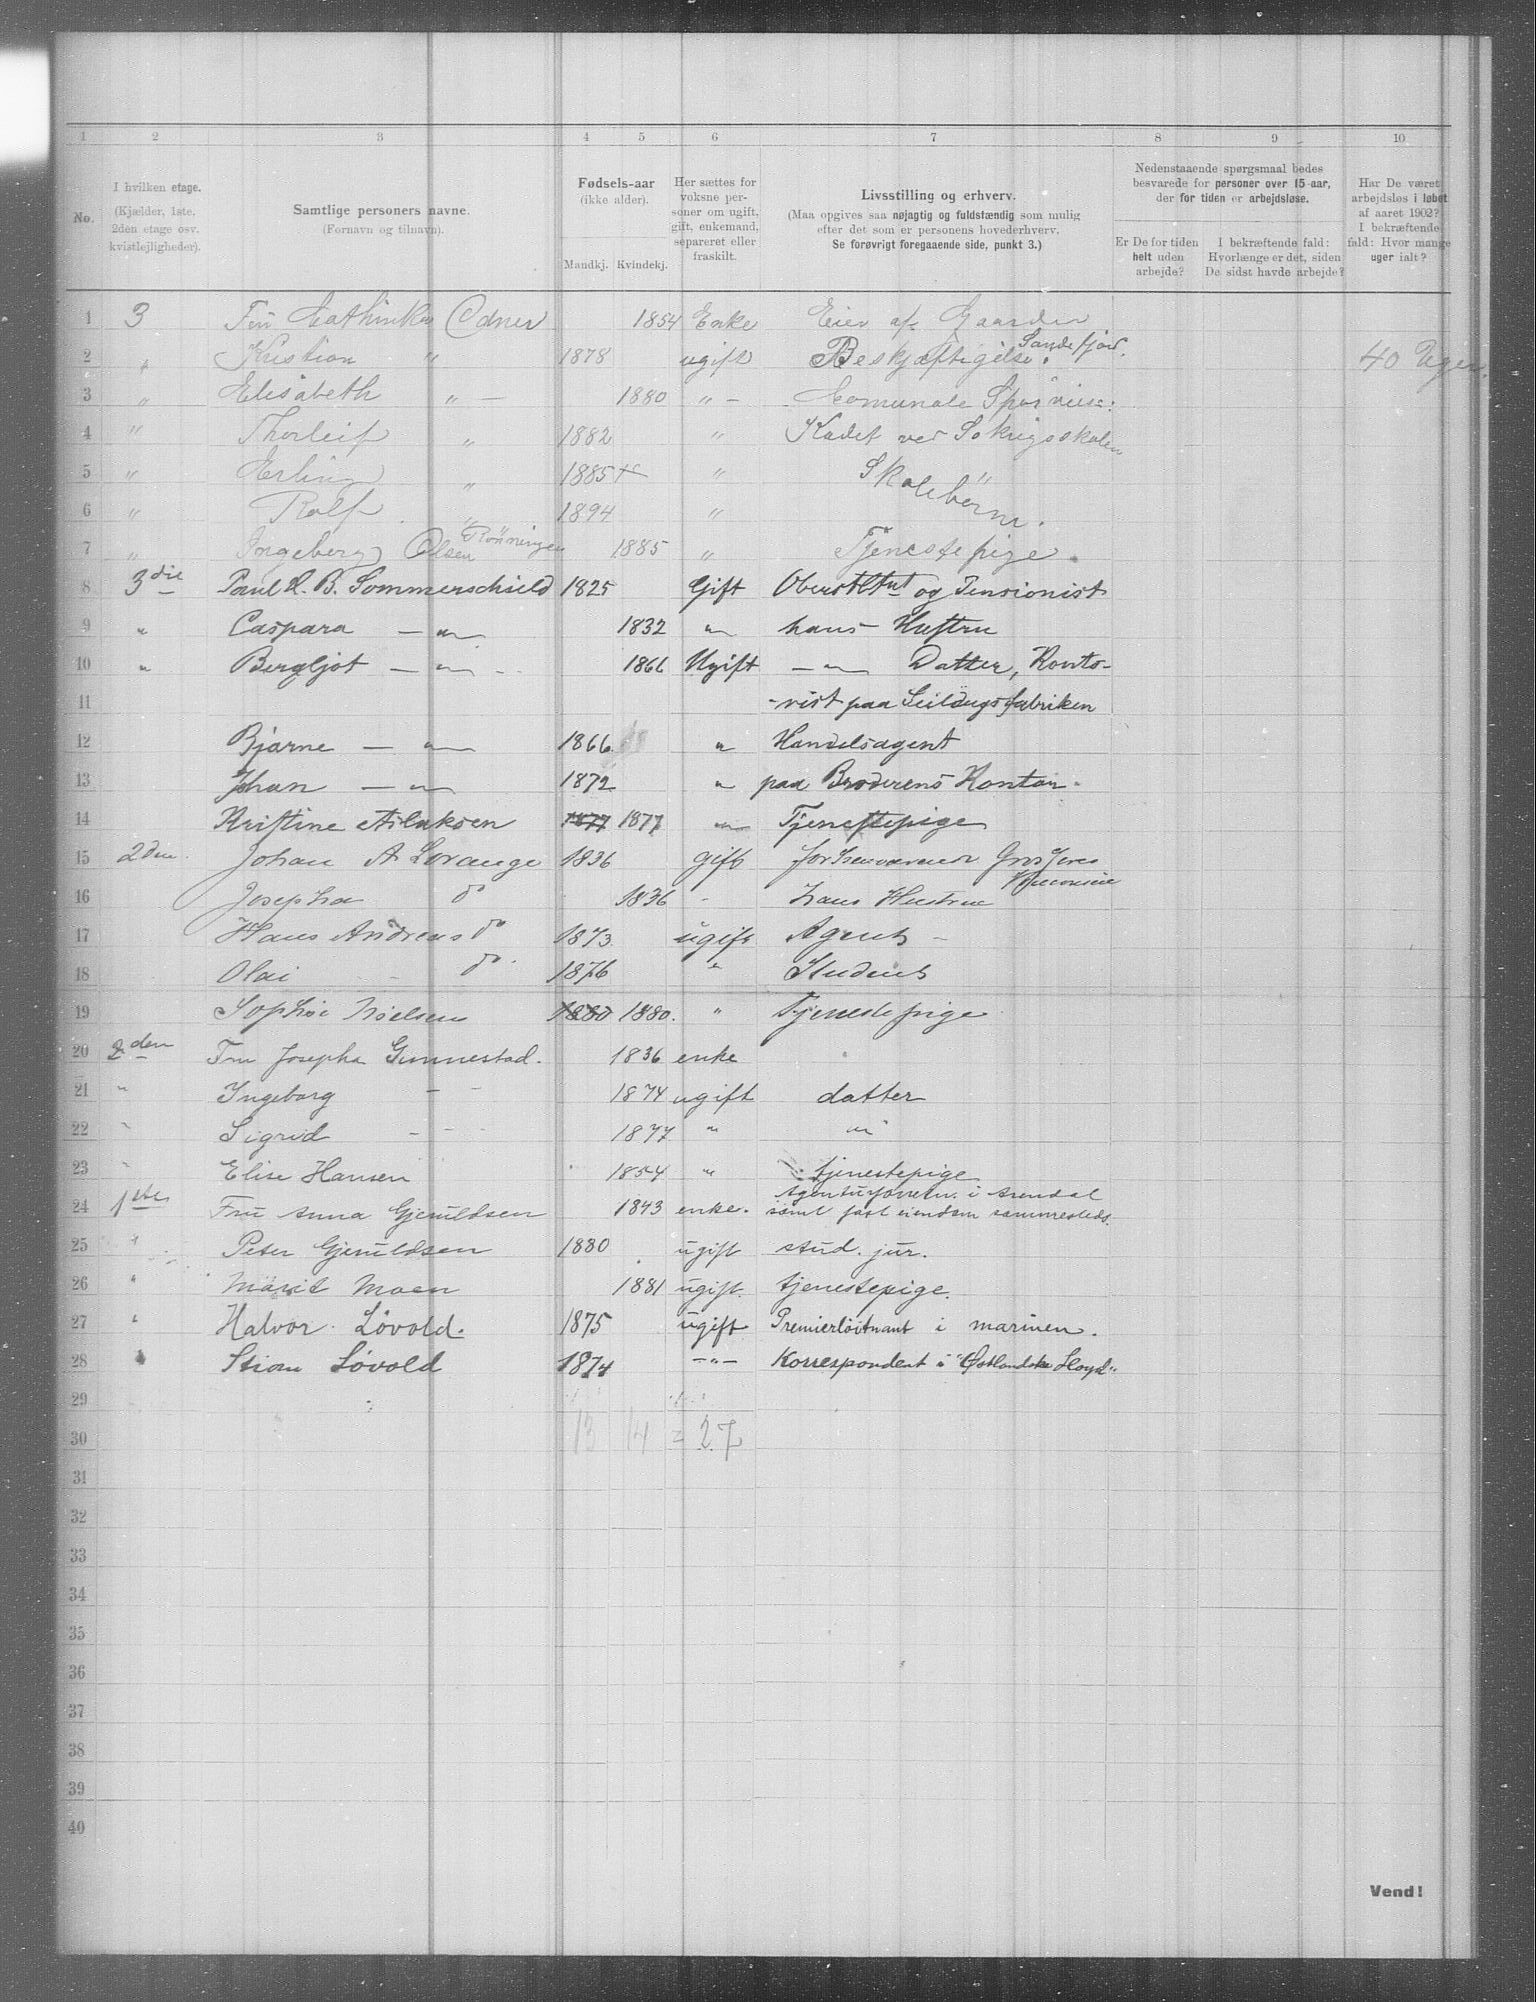 1 2 3 4 5 6 7 8 9 10
No.
I hvilken etage.
(Kjælder, 1ste,
2den etage osv.
kvistlejligheder).
Samtlige personers navne.
(Fornavn og tilnavn).
Fødsels-aar
(ikke alder).
Mandkj. Kvindekj.
Her sættes for
voksne per-
soner om ugift,
gift, enkemand,
separeret eller
fraskilt.
Livsstilling og erhverv.
(Maa opgives saa nøjagtig og fuldstændig som mulig
efter det som er personens hovederhverv.
Se forøvrigt foregaaende side, punkt 3.)
Nedenstaaende spørgsmaal bedes
besvarede for personer over 15 aar,
der for tiden er arbejdsløse.
Er De for tiden
helt uden
arbejde?
I bekræftende fald:
Hvorlænge er det, siden
De sidst havde arbejde?
Har De været
arbejdsløs i løbet
af aaret 1902?
I bekræftende
fald: Hvor mange
uger ialt?
1 3 Fru Cathinka Odner 1854 Enke Eier af Gaarden
2 " Kristian " 1878 ugift Beskjæftigelse. Sandefjord. 40 Uger.
3 " Elisabeth " — 1880 " – Comunale Sporveie:
4 " Thorleif " 1882 " Kadet ved Søkrigsskolen
5 " Erling " 1885 " Skolebørn.
6 " Rolf " 1894 "
7 " Ingeberg Olsen Rønningen 1885 " Tjenestepige.
8 3die Poul H. B. Sommerschield 1825 Gift Oberstltnt og Pensionist
9 " Caspara — " — 1832 " hans Hustru
10 " Bergljot — " — 1866 Ugift — " — Datter, Konto-
11 -rist paa Seildugsfabriken
12 Bjarne — " — 1866 " Handelsagent
13 Johan — " — 1872 " paa Broderens Kontor.
14 Kristine Aslaksen 1877 1877 " Tjenestepige
15 2den. Johan A Lorange 1836 gift forhenværende Grosserer
16 Josepha do 1836 - hans Hustrue
17 Hans Andreas do 1873 ugift Agent –
18 Olai do 1876 " Student
19 Sophie Nielsen 1880 1880. " Tjenestepige
20 2den Fru Josepha Gunnestad. 1836 enke
21 " Ingeborg – – 1874 ugift datter
22 " Sigrid – – – 1877 " "
23 " Elise Hansen 1854 " tjenestepige
24 1ste Fru Anna Gjeruldsen 1843 enke. Agenturforretn. i Arendal
samt fast eiendom sammesteds.
25 " Peter Gjeruldsen 1880 ugift stud. jur.
26 " Marit Moen 1881 ugift. tjenestepige.
27 " Halvor Løvold. 1875 ugift Premierløitnant i marinen.
28 " Stian Løvold 1874 –"– Korrespondent i "Østlandske Lloyd".
29
30 13 14 = 27
31
32
33
34
35
36
37
38
39
40
Vend!